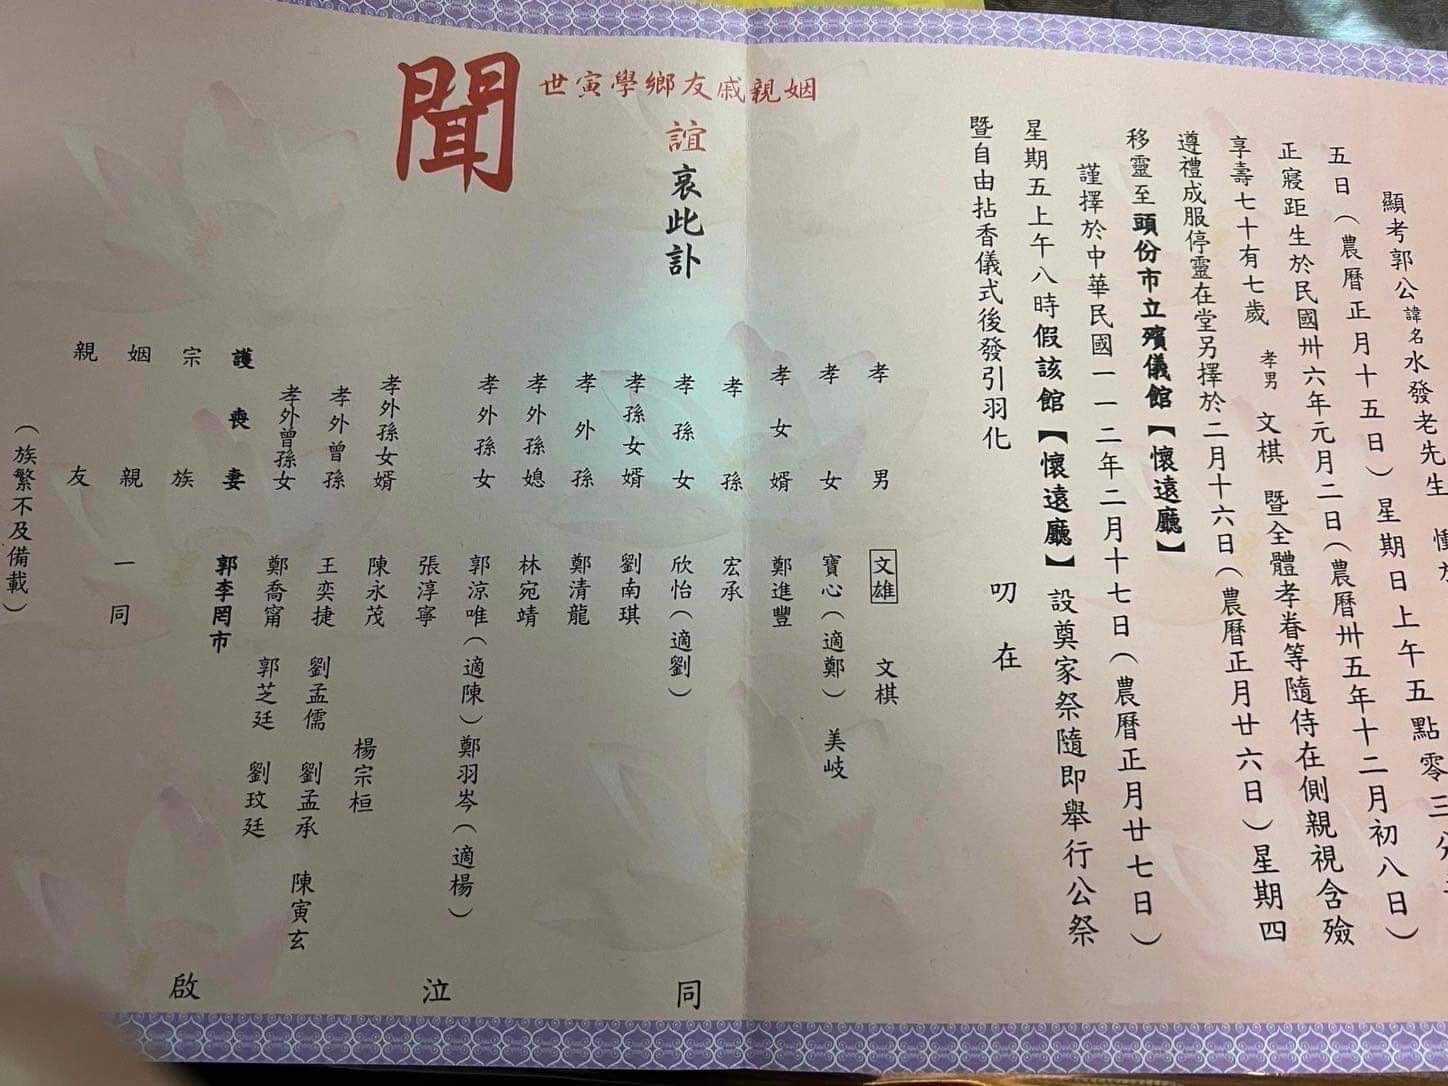 顯考郭公諱名水發老先生
五日（農曆正月十五日）星期日上午五點零三分
正寢距生於民國卅六年元月二日（農曆卅五年十二月初八日）
享壽七十有七歲 孝男 文棋 暨全體孝眷等隨侍在側親視含殮
遵禮成服停靈在堂另擇於二月十六日（農曆正月廿六日）星期四
移靈至頭份市立殯儀館【懷遠廳】
謹擇於中華民國一一二年二月十七日（農曆正月廿七日）
星期五上午八時假該館【懷遠廳】設奠家祭隨即舉行公祭
暨自由拈香儀式後發引羽化
叨在
世寅學鄉友戚親姻
誼哀此訃
聞
孝男 文雄 文棋
孝女 寶心（適鄭） 美岐
孝女婿 鄭進豐
孝孫 宏承
孝孫女 欣怡（適劉）
孝孫女婿 劉南琪
孝外孫 鄭清龍
孝外孫媳 林宛靖
孝外孫女 郭涼唯（適陳）鄭羽岑（適楊）
張淳寧
孝外孫女婿 陳永茂 楊宗桓
孝外曾孫 王奕捷 劉孟儒 劉孟承 陳寅玄
孝外曾孫女 鄭喬甯 郭芝廷 劉玟廷
護喪妻 郭李罔市
宗族
姻親 一同
親友
（族繁不及備載）
同泣啟